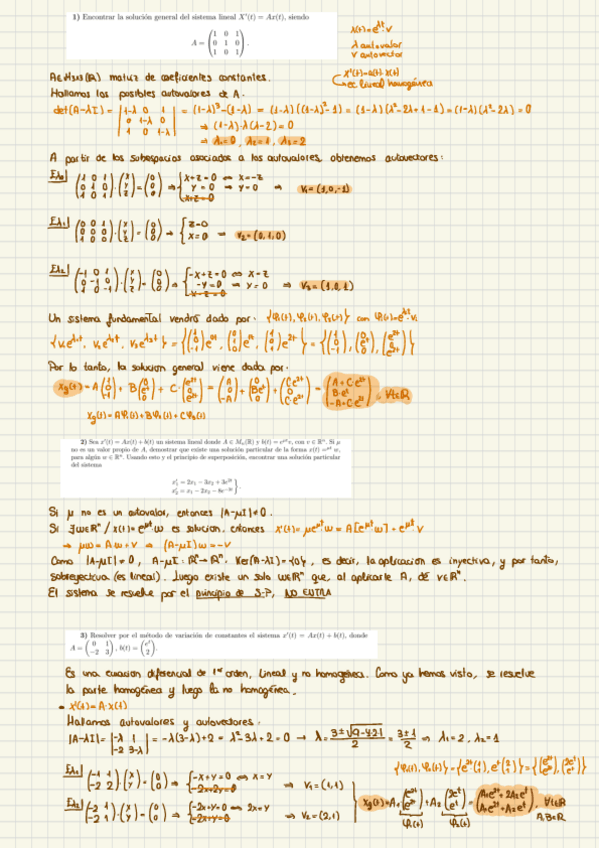 1) Encontrar la solución general del sistema lineal X'(t) = Ax(t), siendo
A = (1 0 1
0 1 0
1 0 1).
x(t)=e^λt·v
λ autovalor
v autovector
X'(t)=a(t)·X(t)
ec lineal homogénea
A∈M3x3(R) matriz de coeficientes constantes.
Hallamos los posibles autovalores de A.
det(A-λI) = |1-λ 0 1; 0 1-λ 0; 1 0 1-λ| = (1-λ)³-(1-λ) = (1-λ)((1-λ)²-1) = (1-λ)(λ²-2λ+1-1) = (1-λ)(λ²-2λ) = 0
⇒ (1-λ)·λ(λ-2)=0
⇒ λ1=0, λ2=1, λ3=2
A partir de los subespacios asociados a los autovalores, obtenemos autovectores:
(1 0 1; 0 1 0; 1 0 1)·(x; y; z)=(0; 0; 0) ⇒ {x+z=0 ⇔ x=-z; y=0 ⇒ y=0; x+z=0 ⇒ v1=(1,0,-1)
(0 0 1; 0 0 0; 1 0 0)·(x; y; z)=(0; 0; 0) ⇒ {z=0; x=0 ⇒ v2=(0,1,0)
(-1 0 1; 0 -1 0; 1 0 -1)·(x; y; z)=(0; 0; 0) ⇒ {-x+z=0 ⇔ x=z; -y=0 ⇔ y=0; x-z=0 ⇒ v3=(1,0,1)
Un sistema fundamental vendrá dado por: {φ1(t), φ2(t), φ3(t)} con φi(t)=e^λt·vi
Por lo tanto, la solución general viene dada por:
Xg(t) = A(1; 0; -1) + B(0; e^t; 0) + C·(e^2t; 0; e^2t) = (A; 0; -A) + (0; Be^t; 0) + (Ce^2t; 0; C·e^2t) = (A+C·e^2t; B·e^t; -A+C·e^2t), ∀t∈R
xg(t)=Aφ1(t)+Bφ2(t)+Cφ3(t)
2) Sea x'(t) = Ax(t) + b(t) un sistema lineal donde A ∈ Mn(R) y b(t) = e^μt v, con v ∈ R^n. Si μ
no es un valor propio de A, demostrar que existe una solución particular de la forma x(t) = e^μt w,
para algún w ∈ R^n. Usando esto y el principio de superposición, encontrar una solución particular
del sistema
Si μ no es un autovalor, entonces |A-μI|≠0.
Si ∃w∈R^n / x(t)=e^μt·w es solución, entonces x'(t)=μe^μt w = A[e^μt w]+e^μt v
⇒ μw=Aw+v ⇒ (A-μI)w=-v
Como |A-μI|≠0, A-μI: R^n→R^n, Ker(A-λI)={0}, es decir, la aplicación es inyectiva, y por tanto,
sobreyectiva (es lineal). Luego existe un solo w∈R^n que, al aplicarle A, dé v∈R^n.
El sistema se resuelve por el principio de S-P, NO ENTRA
3) Resolver por el método de variación de constantes el sistema x'(t) = Ax(t) + b(t), donde
A = (0 1; -2 3), b(t) = (e^t; 2).
Es una ecuación diferencial de 1er orden, lineal y no homogénea. Como ya hemos visto, se resuelve
la parte homogénea y luego la no homogénea.
- x'(t)=A·x(t)
Hallamos autovalores y autovectores:
|A-λI| = |-λ 1; -2 3-λ| = -λ(3-λ)+2 = λ²-3λ+2=0 → λ = (3±√(9-4·2·1))/2 = (3±1)/2 ⇒ λ1=2, λ2=1
(-1 1; -2 2)·(x; y)=(0; 0) ⇒ {-x+y=0 ⇔ x=y; -2x+2y=0 ⇒ v1=(1,1)
(-2 1; -2 1)·(x; y)=(0; 0) ⇒ {-2x+y=0 ⇔ 2x=y; -2x+y=0 ⇒ v2=(2,1)
xg(t)=A1(e^2t; e^2t)+A2(2e^t; e^t)=(A1e^2t+2A2e^t; A1e^2t+A2e^t), ∀t∈R
φ1(t) φ2(t)